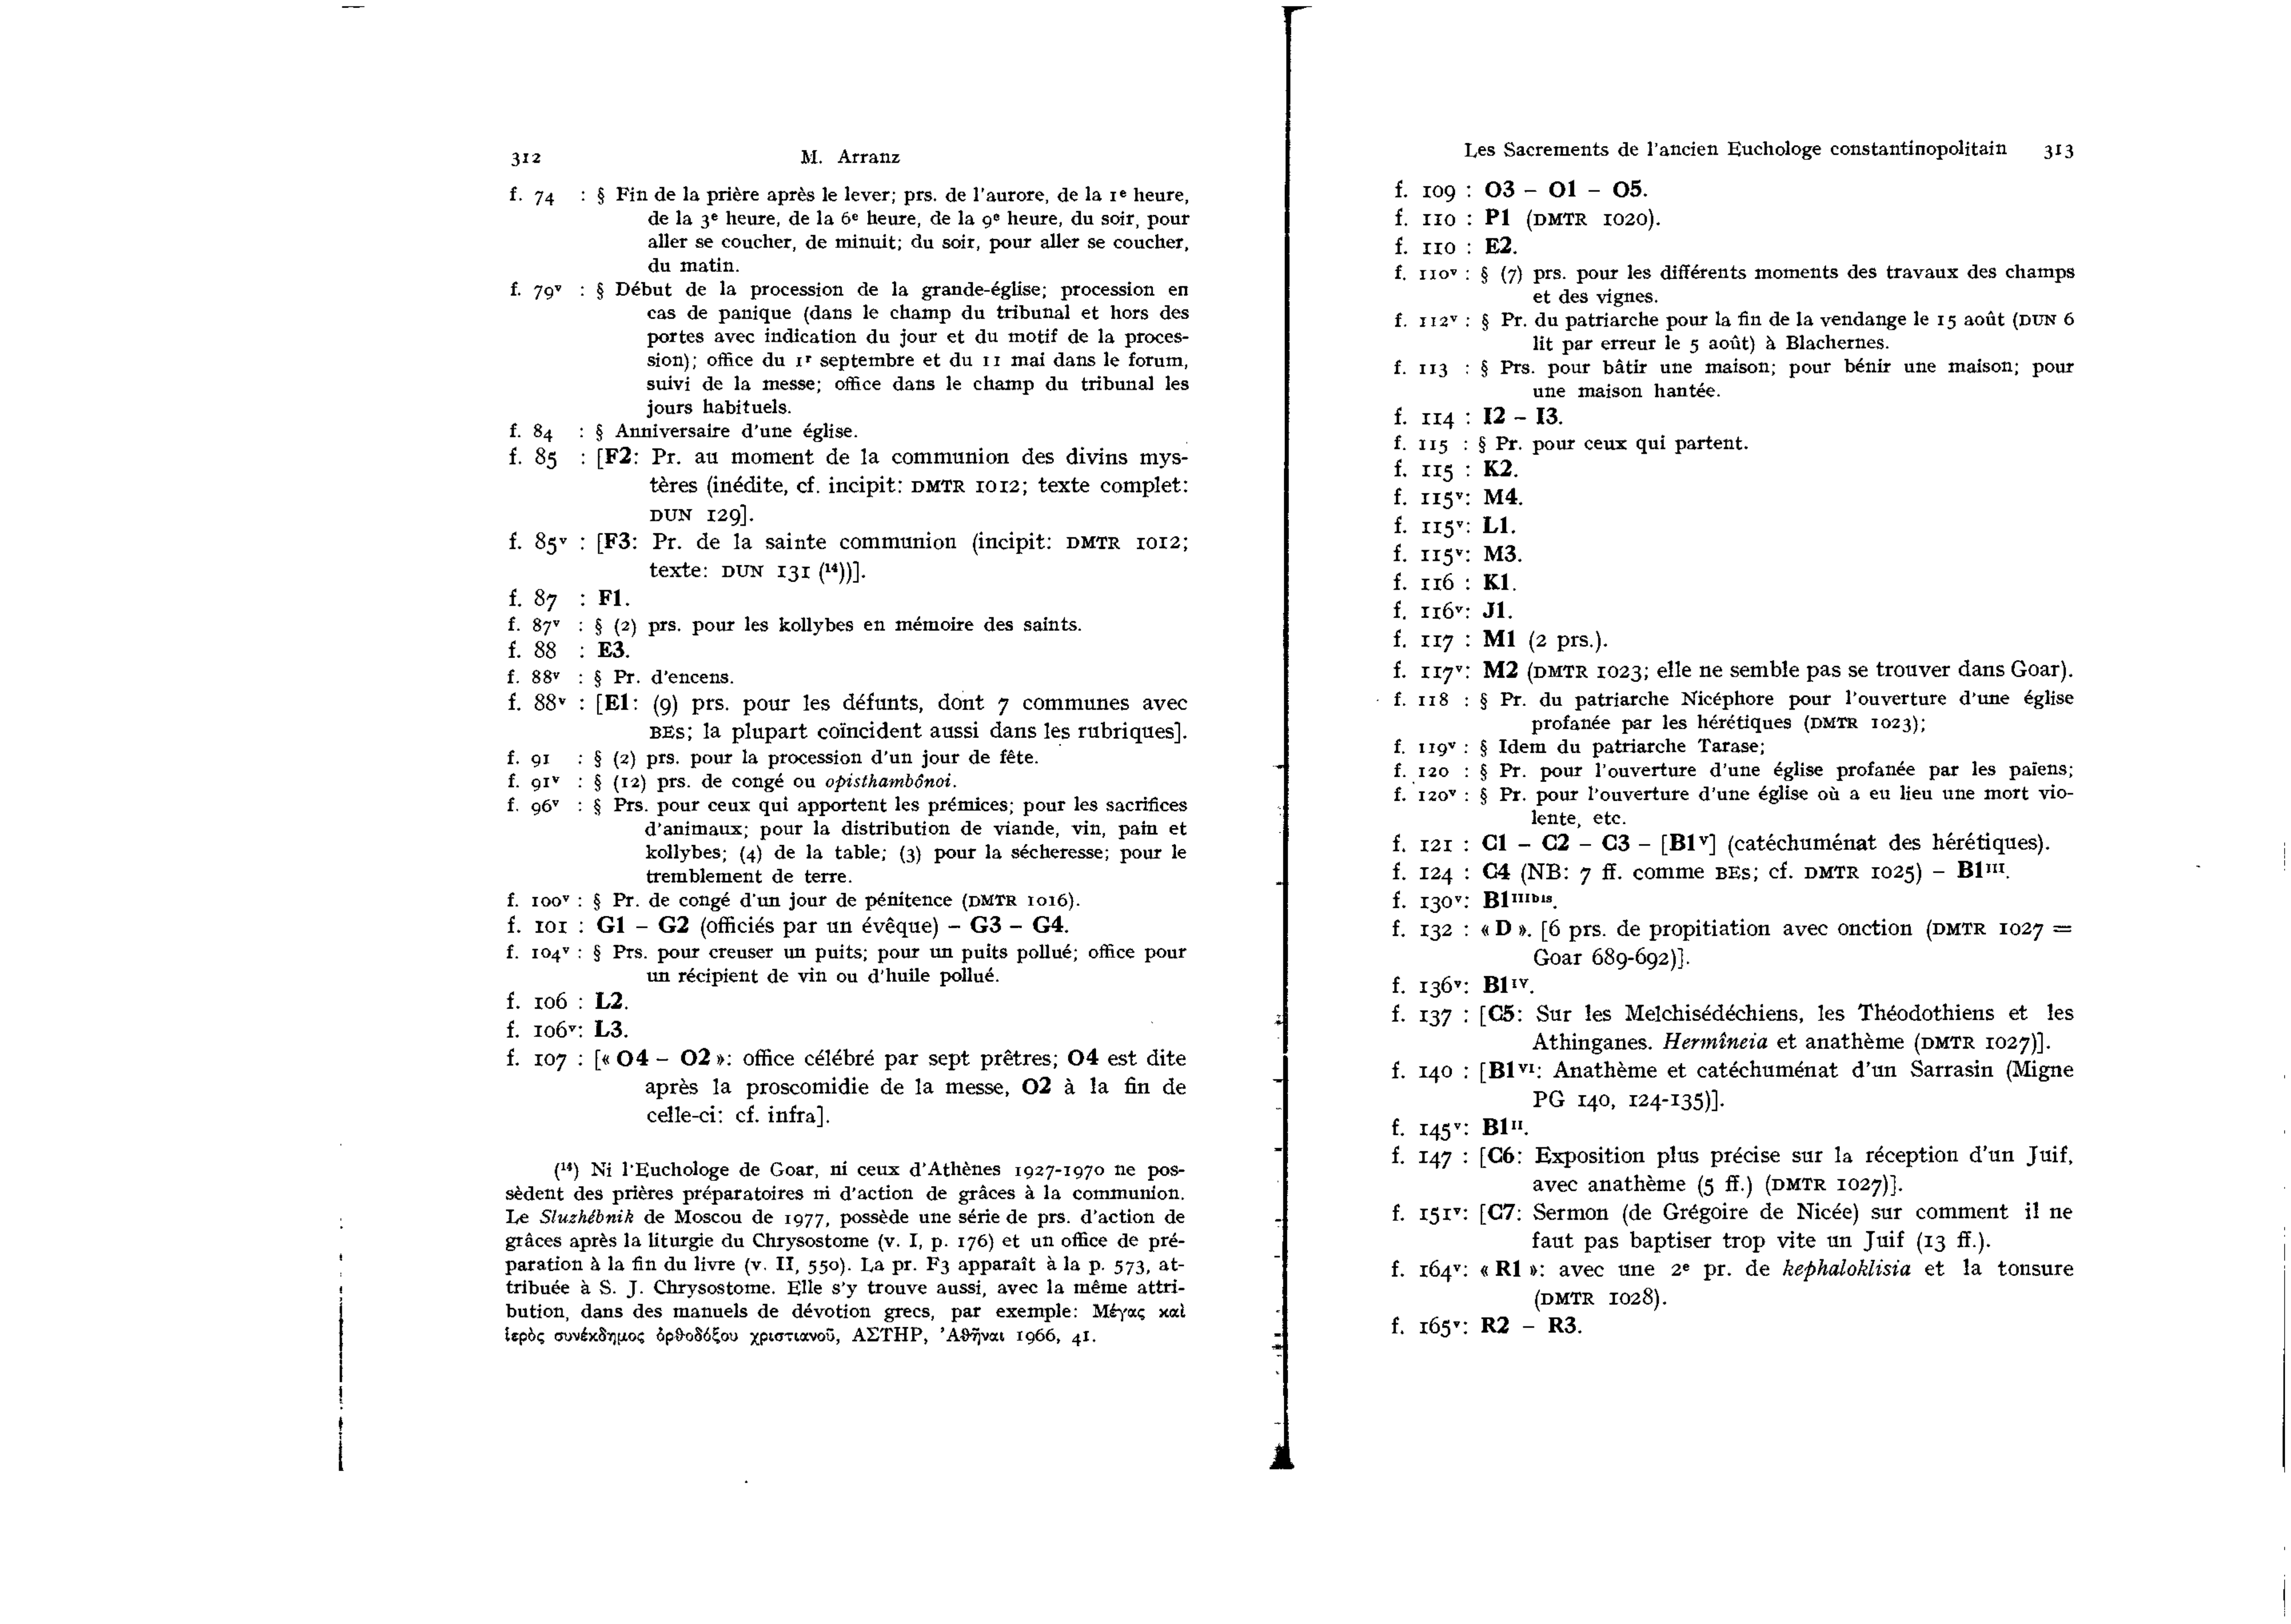 312 M. Arranz
f. 74 : § Fin de la prière après le lever; prs. de l'aurore, de la 1e heure,
de la 3e heure, de la 6e heure, de la 9e heure, du soir, pour
aller se coucher, de minuit; du soir, pour aller se coucher,
du matin.
f. 79v : § Début de la procession de la grande-église; procession en
cas de panique (dans le champ du tribunal et hors des
portes avec indication du jour et du motif de la proces-
sion); office du 1r septembre et du 11 mai dans le forum,
suivi de la messe; office dans le champ du tribunal les
jours habituels.
f. 84 : § Anniversaire d'une église.
f. 85 : [F2: Pr. au moment de la communion des divins mys-
tères (inédite, cf. incipit: DMTR 1012; texte complet:
DUN 129].
f. 85v : [F3: Pr. de la sainte communion (incipit: DMTR 1012;
texte: DUN 131 (14))].
f. 87 : F1.
f. 87v : § (2) prs. pour les kollybes en mémoire des saints.
f. 88 : E3.
f. 88v : § Pr. d'encens.
f. 88v : [E1: (9) prs. pour les défunts, dont 7 communes avec
BES; la plupart coïncident aussi dans les rubriques].
f. 91 : § (2) prs. pour la procession d'un jour de fête.
f. 91v : § (12) prs. de congé ou opisthambônoi.
f. 96v : § Prs. pour ceux qui apportent les prémices; pour les sacrifices
d'animaux; pour la distribution de viande, vin, pain et
kollybes; (4) de la table; (3) pour la sécheresse; pour le
tremblement de terre.
f. 100v : § Pr. de congé d'un jour de pénitence (DMTR 1016).
f. 101 : G1 – G2 (officiés par un évêque) – G3 – G4.
f. 104v : § Prs. pour creuser un puits; pour un puits pollué; office pour
un récipient de vin ou d'huile pollué.
f. 106 : L2.
f. 106v: L3.
f. 107 : [« O4 – O2 »: office célébré par sept prêtres; O4 est dite
après la proscomidie de la messe, O2 à la fin de
celle-ci: cf. infra].
(14) Ni l'Euchologe de Goar, ni ceux d'Athènes 1927-1970 ne pos-
sèdent des prières préparatoires ni d'action de grâces à la communion.
Le Sluzhébnik de Moscou de 1977, possède une série de prs. d'action de
grâces après la liturgie du Chrysostome (v. I, p. 176) et un office de pré-
paration à la fin du livre (v. II, 550). La pr. F3 apparaît à la p. 573, at-
tribuée à S. J. Chrysostome. Elle s'y trouve aussi, avec la même attri-
bution, dans des manuels de dévotion grecs, par exemple: Μέγας καὶ
ἱερὸς συνέκδημος ὀρθοδόξου χριστιανοῦ, ΑΣΤΗΡ, Ἀθῆναι 1966, 41.
Les Sacrements de l'ancien Euchologe constantinopolitain 313
f. 109 : O3 – O1 – O5.
f. 110 : P1 (DMTR 1020).
f. 110 : E2.
f. 110v : § (7) prs. pour les différents moments des travaux des champs
et des vignes.
f. 112v : § Pr. du patriarche pour la fin de la vendange le 15 août (DUN 6
lit par erreur le 5 août) à Blachernes.
f. 113 : § Prs. pour bâtir une maison; pour bénir une maison; pour
une maison hantée.
f. 114 : I2 – I3.
f. 115 : § Pr. pour ceux qui partent.
f. 115 : K2.
f. 115v: M4.
f. 115v: L1.
f. 115v: M3.
f. 116 : K1.
f. 116v: J1.
f. 117 : M1 (2 prs.).
f. 117v: M2 (DMTR 1023; elle ne semble pas se trouver dans Goar).
f. 118 : § Pr. du patriarche Nicéphore pour l'ouverture d'une église
profanée par les hérétiques (DMTR 1023);
f. 119v : § Idem du patriarche Tarase;
f. 120 : § Pr. pour l'ouverture d'une église profanée par les païens;
f. 120v : § Pr. pour l'ouverture d'une église où a eu lieu une mort vio-
lente, etc.
f. 121 : C1 – C2 – C3 – [B1V] (catéchuménat des hérétiques).
f. 124 : C4 (NB: 7 ff. comme BES; cf. DMTR 1025) – B1III.
f. 130v: B1IIIbis.
f. 132 : « D ». [6 prs. de propitiation avec onction (DMTR 1027 =
Goar 689-692)].
f. 136v: B1IV.
f. 137 : [C5: Sur les Melchisédéchiens, les Théodothiens et les
Athinganes. Hermîneia et anathème (DMTR 1027)].
f. 140 : [B1VI: Anathème et catéchuménat d'un Sarrasin (Migne
PG 140, 124-135)].
f. 145v: B1II.
f. 147 : [C6: Exposition plus précise sur la réception d'un Juif,
avec anathème (5 ff.) (DMTR 1027)].
f. 151v: [C7: Sermon (de Grégoire de Nicée) sur comment il ne
faut pas baptiser trop vite un Juif (13 ff.).
f. 164v: « R1 »: avec une 2e pr. de kephaloklisia et la tonsure
(DMTR 1028).
f. 165v: R2 – R3.